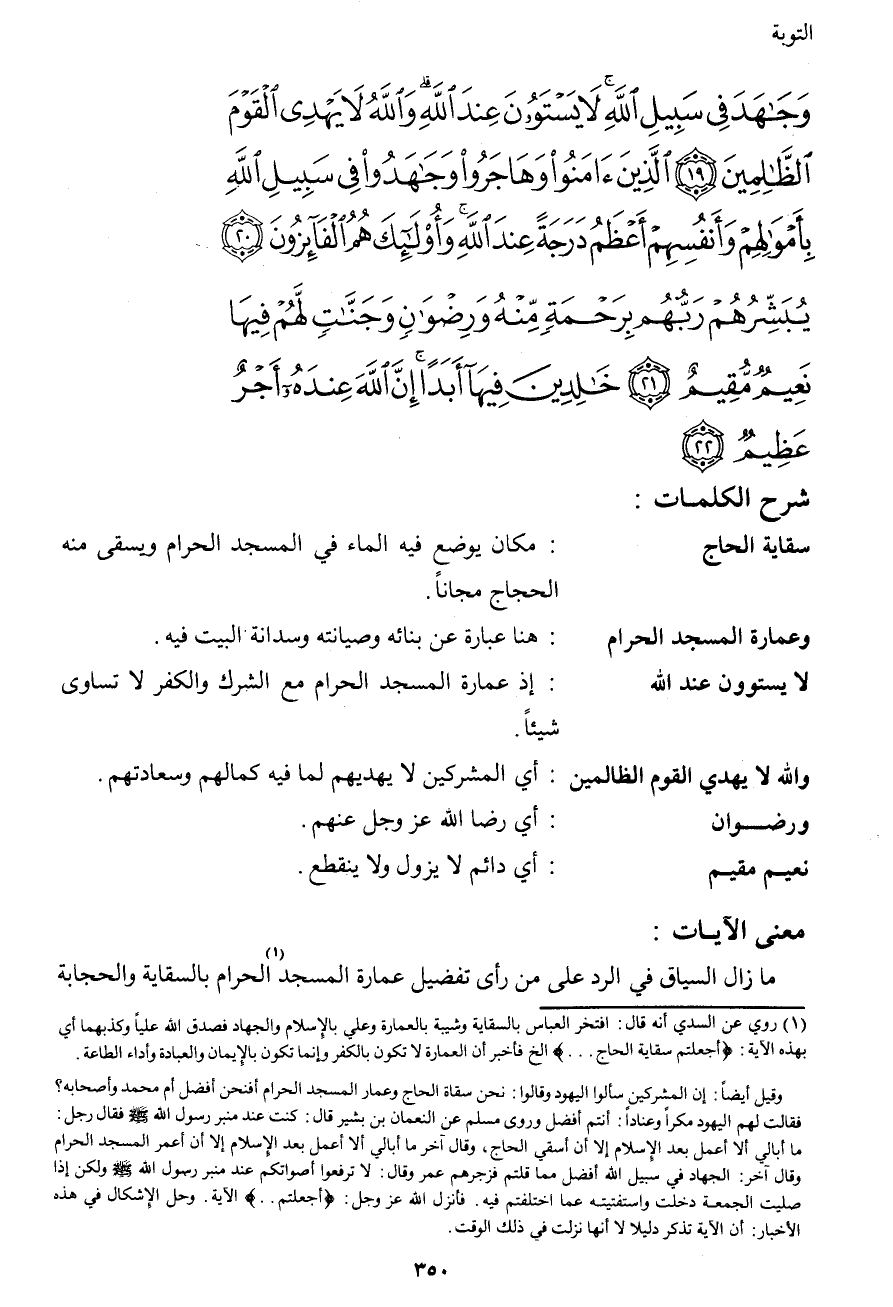 التوبة
وَجَٰهَدَ فِي سَبِيلِ ٱللَّهِۚ لَا يَسۡتَوُۥنَ عِندَ ٱللَّهِۗ وَٱللَّهُ لَا يَهۡدِي ٱلۡقَوۡمَ
ٱلظَّٰلِمِينَ ﴿١٩﴾ ٱلَّذِينَ ءَامَنُواْ وَهَاجَرُواْ وَجَٰهَدُواْ فِي سَبِيلِ ٱللَّهِ
بِأَمۡوَٰلِهِمۡ وَأَنفُسِهِمۡ أَعۡظَمُ دَرَجَةً عِندَ ٱللَّهِۚ وَأُوْلَٰٓئِكَ هُمُ ٱلۡفَآئِزُونَ ﴿٢٠﴾
يُبَشِّرُهُمۡ رَبُّهُم بِرَحۡمَةٖ مِّنۡهُ وَرِضۡوَٰنٖ وَجَنَّٰتٖ لَّهُمۡ فِيهَا
نَعِيمٞ مُّقِيمٌ ﴿٢١﴾ خَٰلِدِينَ فِيهَآ أَبَدًاۚ إِنَّ ٱللَّهَ عِندَهُۥٓ أَجۡرٌ
عَظِيمٞ ﴿٢٢﴾
شرح الكلمـات :
سقاية الحاج : مكان يوضع فيه الماء في المسجد الحرام ويسقى منه
الحجاج مجاناً.
وعمارة المسجد الحرام : هنا عبارة عن بنائه وصيانته وسدانة البيت فيه.
لا يستوون عند الله : إذ عمارة المسجد الحرام مع الشرك والكفر لا تساوى
شيئاً.
والله لا يهدي القوم الظالمين : أي المشركين لا يهديهم لما فيه كمالهم وسعادتهم.
ورضــوان : أي رضا الله عز وجل عنهم.
نعيـم مقيـم : أي دائم لا يزول ولا ينقطع.
معنى الآيـات :
ما زال السياق في الرد على من رأى تفضيل عمارة المسجد(١) الحرام بالسقاية والحجابة
(١) روي عن السدي أنه قال: افتخر العباس بالسقاية وشيبة بالعمارة وعلي بالإسلام والجهاد فصدق الله علياً وكذبهما أي
بهذه الآية: ﴿أجعلتم سقاية الحاج . . .﴾ الخ فأخبر أن العمارة لا تكون بالكفر وإنما تكون بالإيمان والعبادة وأداء الطاعة.
وقيل أيضاً: إن المشركين سألوا اليهود وقالوا: نحن سقاة الحاج وعمار المسجد الحرام أفنحن أفضل أم محمد وأصحابه؟
فقالت لهم اليهود مكراً وعناداً: أنتم أفضل وروى مسلم عن النعمان بن بشير قال: كنت عند منبر رسول الله ﷺ فقال رجل:
ما أبالي ألا أعمل بعد الإسلام إلا أن أسقي الحاج، وقال آخر ما أبالي ألا أعمل بعد الإسلام إلا أن أعمر المسجد الحرام
وقال آخر: الجهاد في سبيل الله أفضل مما قلتم فزجرهم عمر وقال: لا ترفعوا أصواتكم عند منبر رسول الله ﷺ ولكن إذا
صليت الجمعة دخلت واستفتيته عما اختلفتم فيه. فأنزل الله عز وجل: ﴿أجعلتم . .﴾ الآية. وحل الإشكال في هذه
الأخبار: أن الآية تذكر دليلا لا أنها نزلت في ذلك الوقت.
٣٥٠